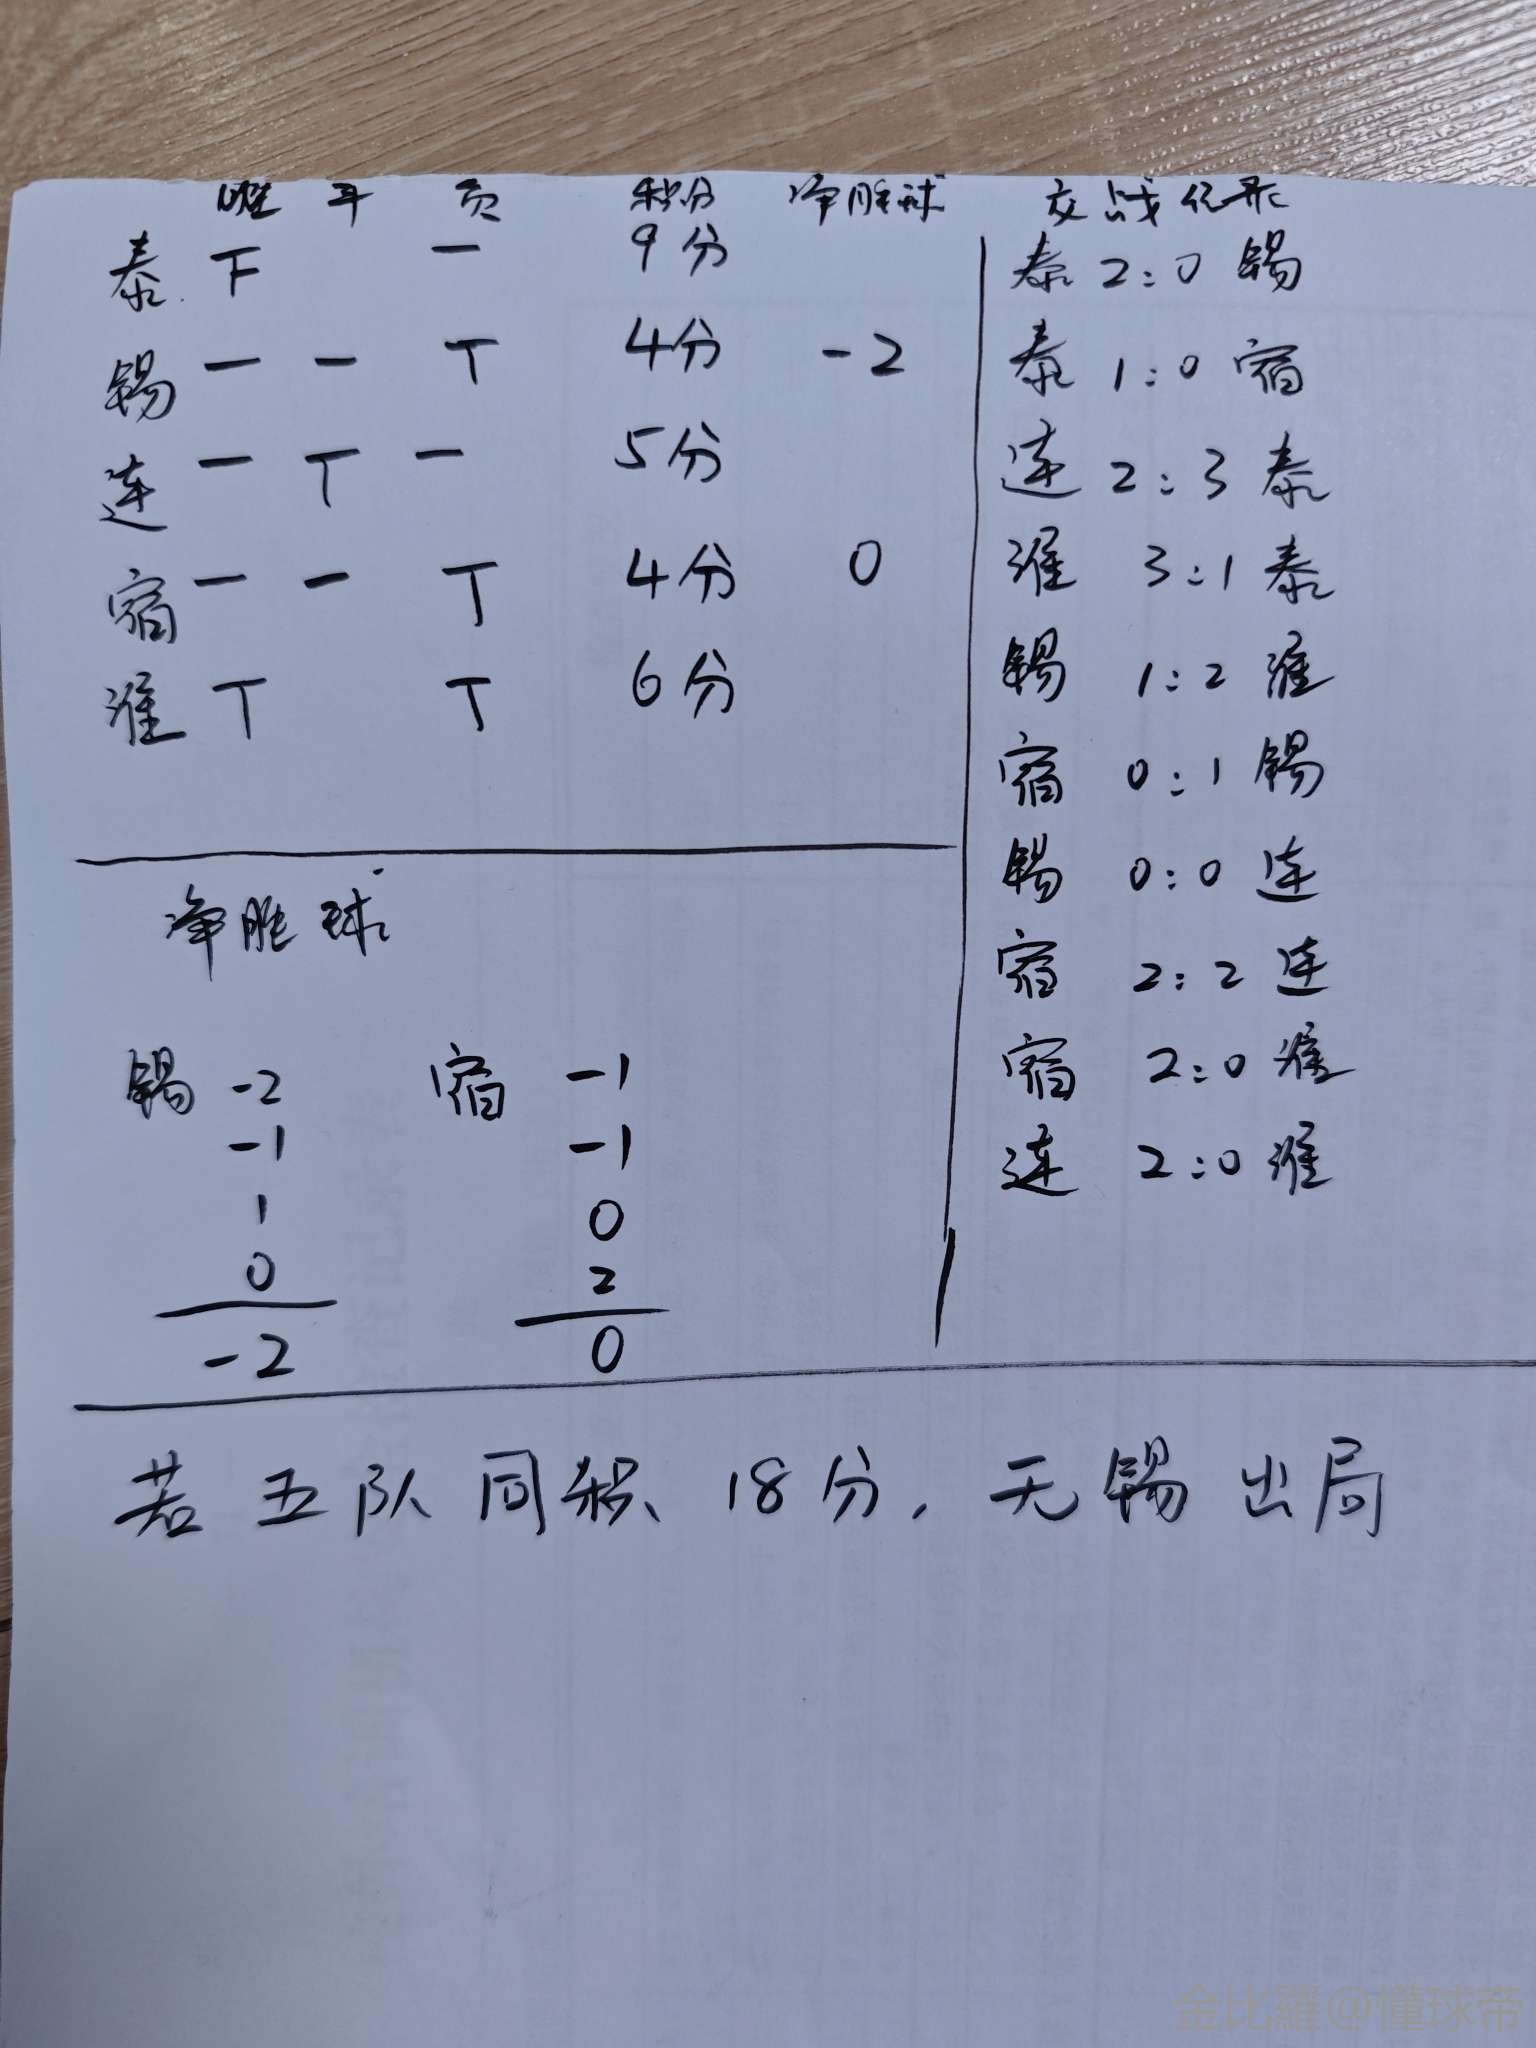 胜 平 负 积分 净胜球
泰 下 一 9分
锡 一 一 T 4分 -2
连 一 T 一 5分
宿 一 一 T 4分 0
淮 T T 6分
交战纪录
泰 2:0 锡
泰 1:0 宿
连 2:3 泰
淮 3:1 泰
锡 1:2 淮
宿 0:1 锡
锡 0:0 连
宿 2:2 连
宿 2:0 淮
连 2:0 淮
净胜球
锡 -2 宿 -1
-1 -1
1 0
0 2
-2 0
若五队同积18分,无锡出局
金比羅@懂球帝